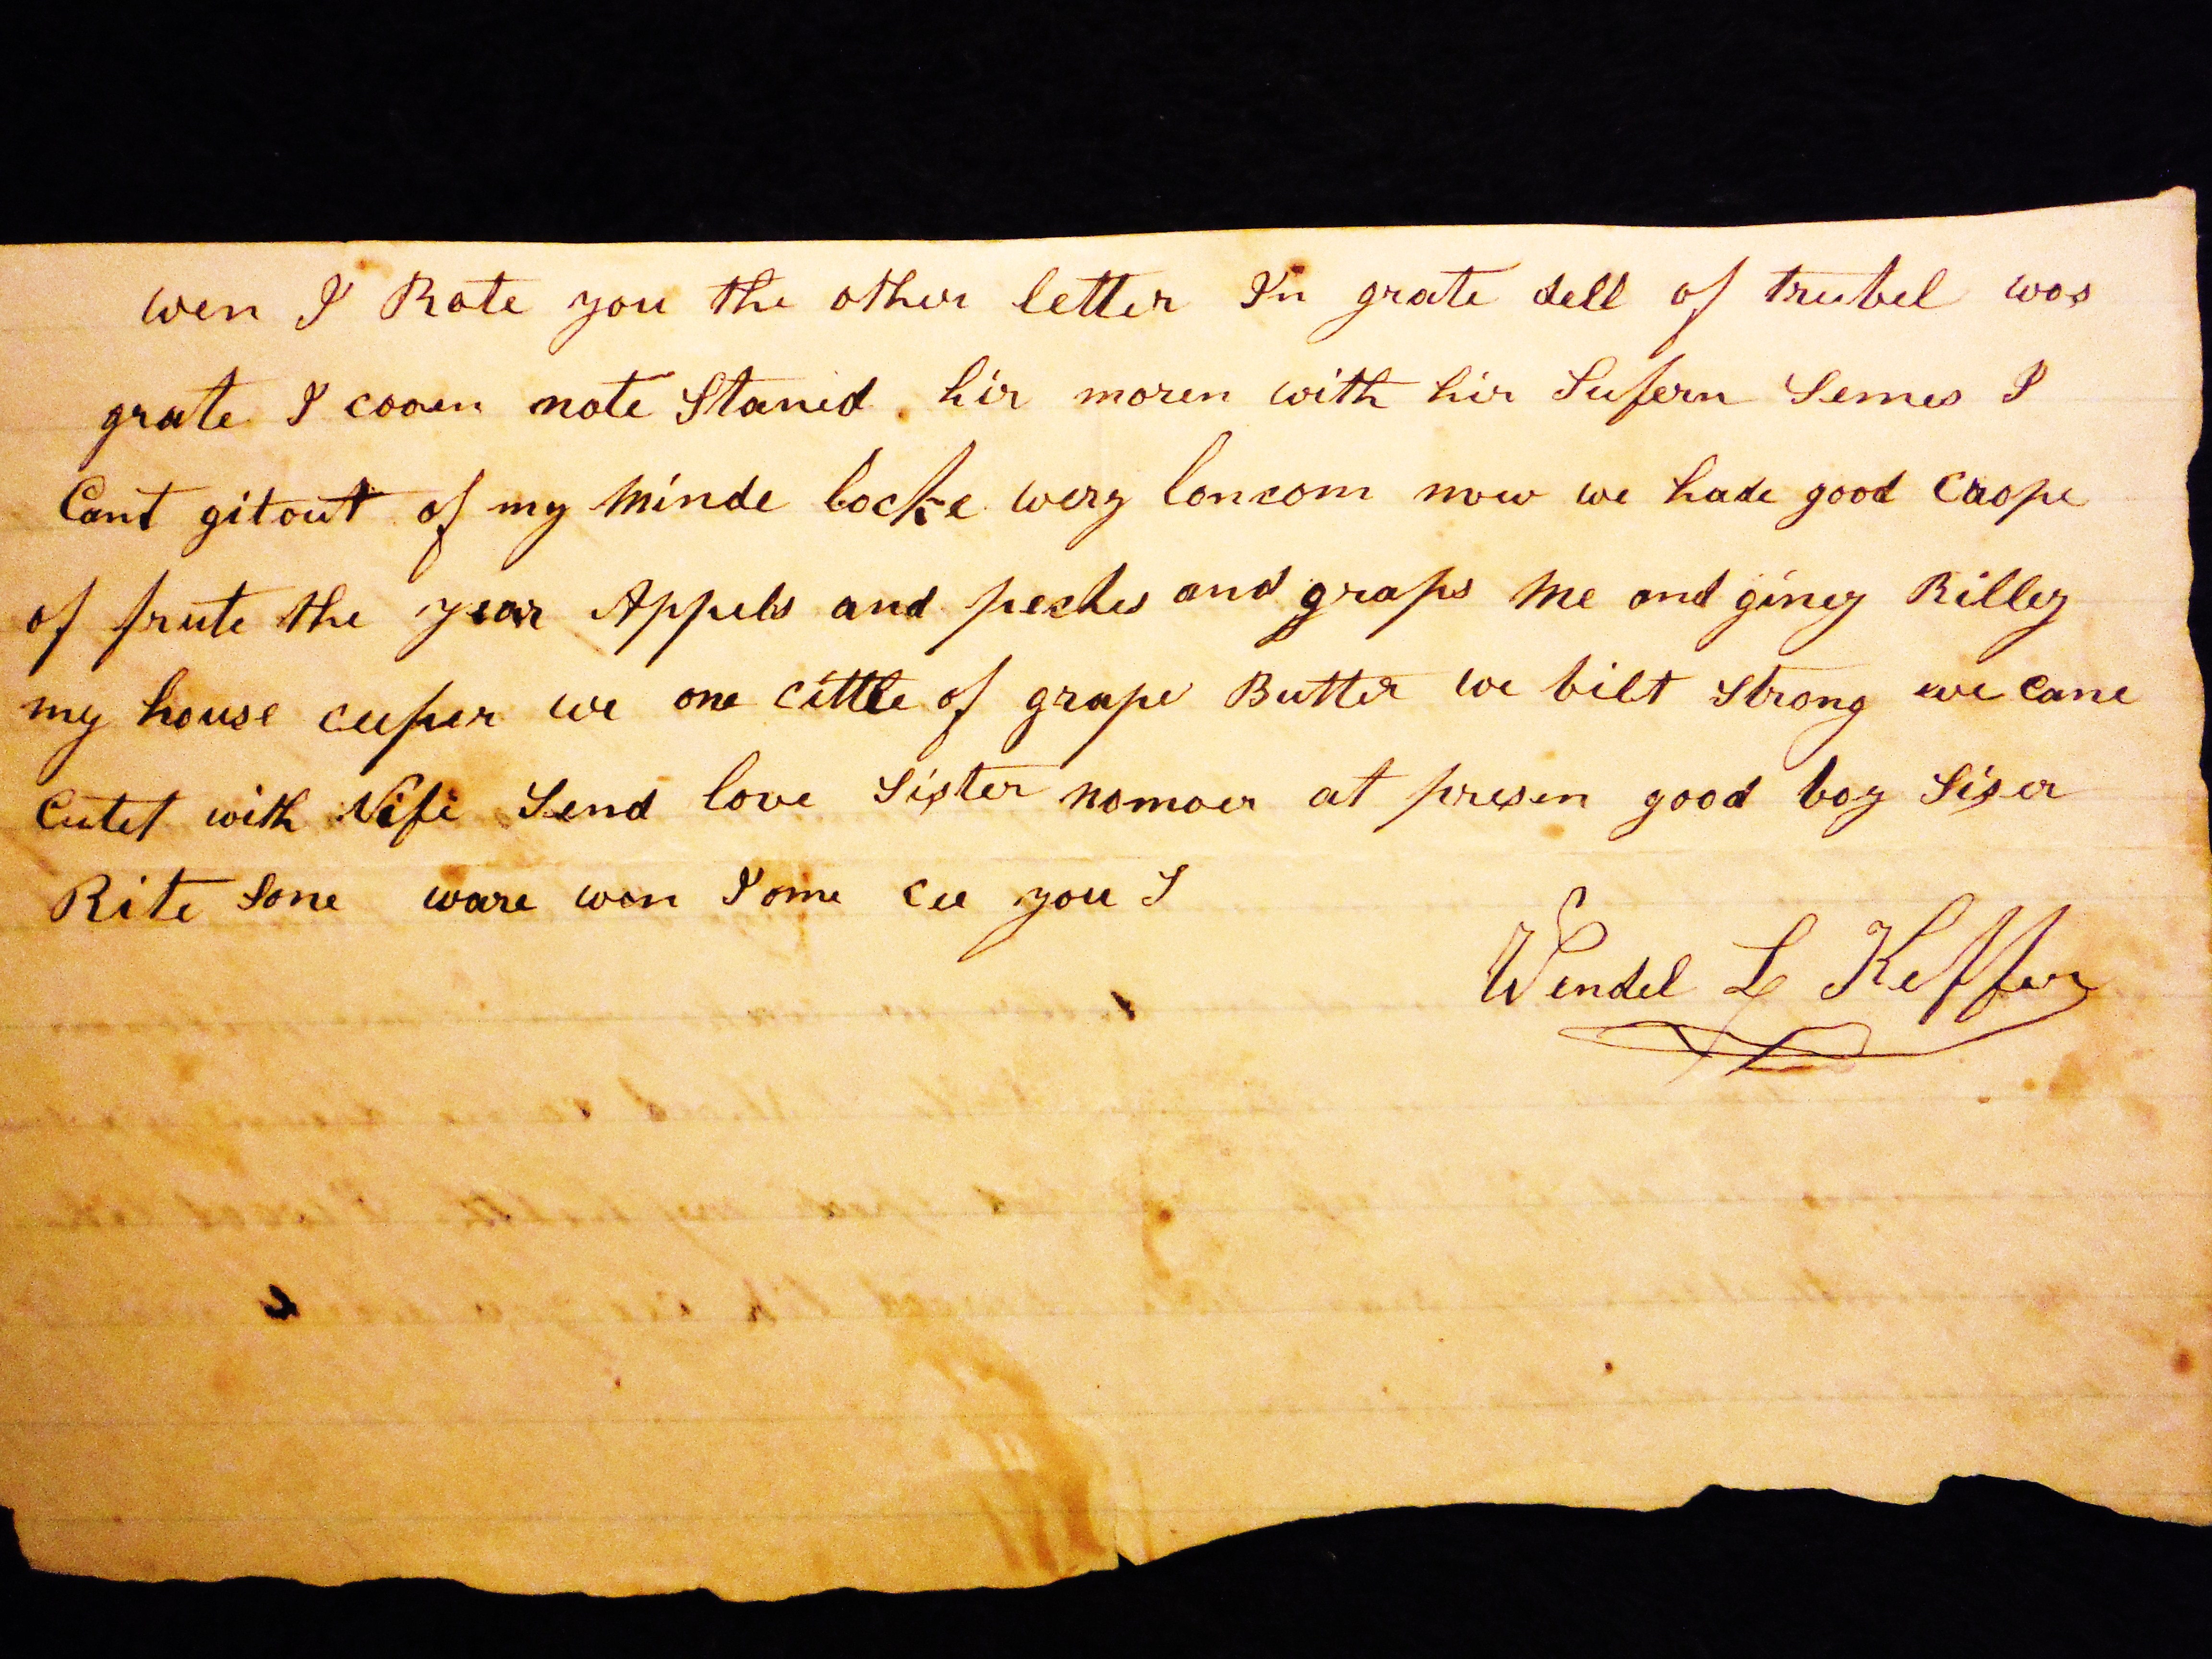 wen I Rote you the other letter In grate dell of trubel was
grate I cooen note Staned hir moren with hir Sufern Semes I
Cant gitout of my Minde locke wery loncom now we hade good Crope
of frute the year Appels and peches and graps Me and giney Rilley
my house ceeper we one cittle of grape Butter we bilt strong we cane
Cutet with Nife Send love Sister nomoer at presen good boy Siser
Rite Sone ware won I ome cee you I
Wendel L Keffer